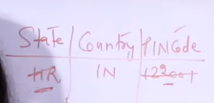 State | Country | PINCode
HR | IN | 122001